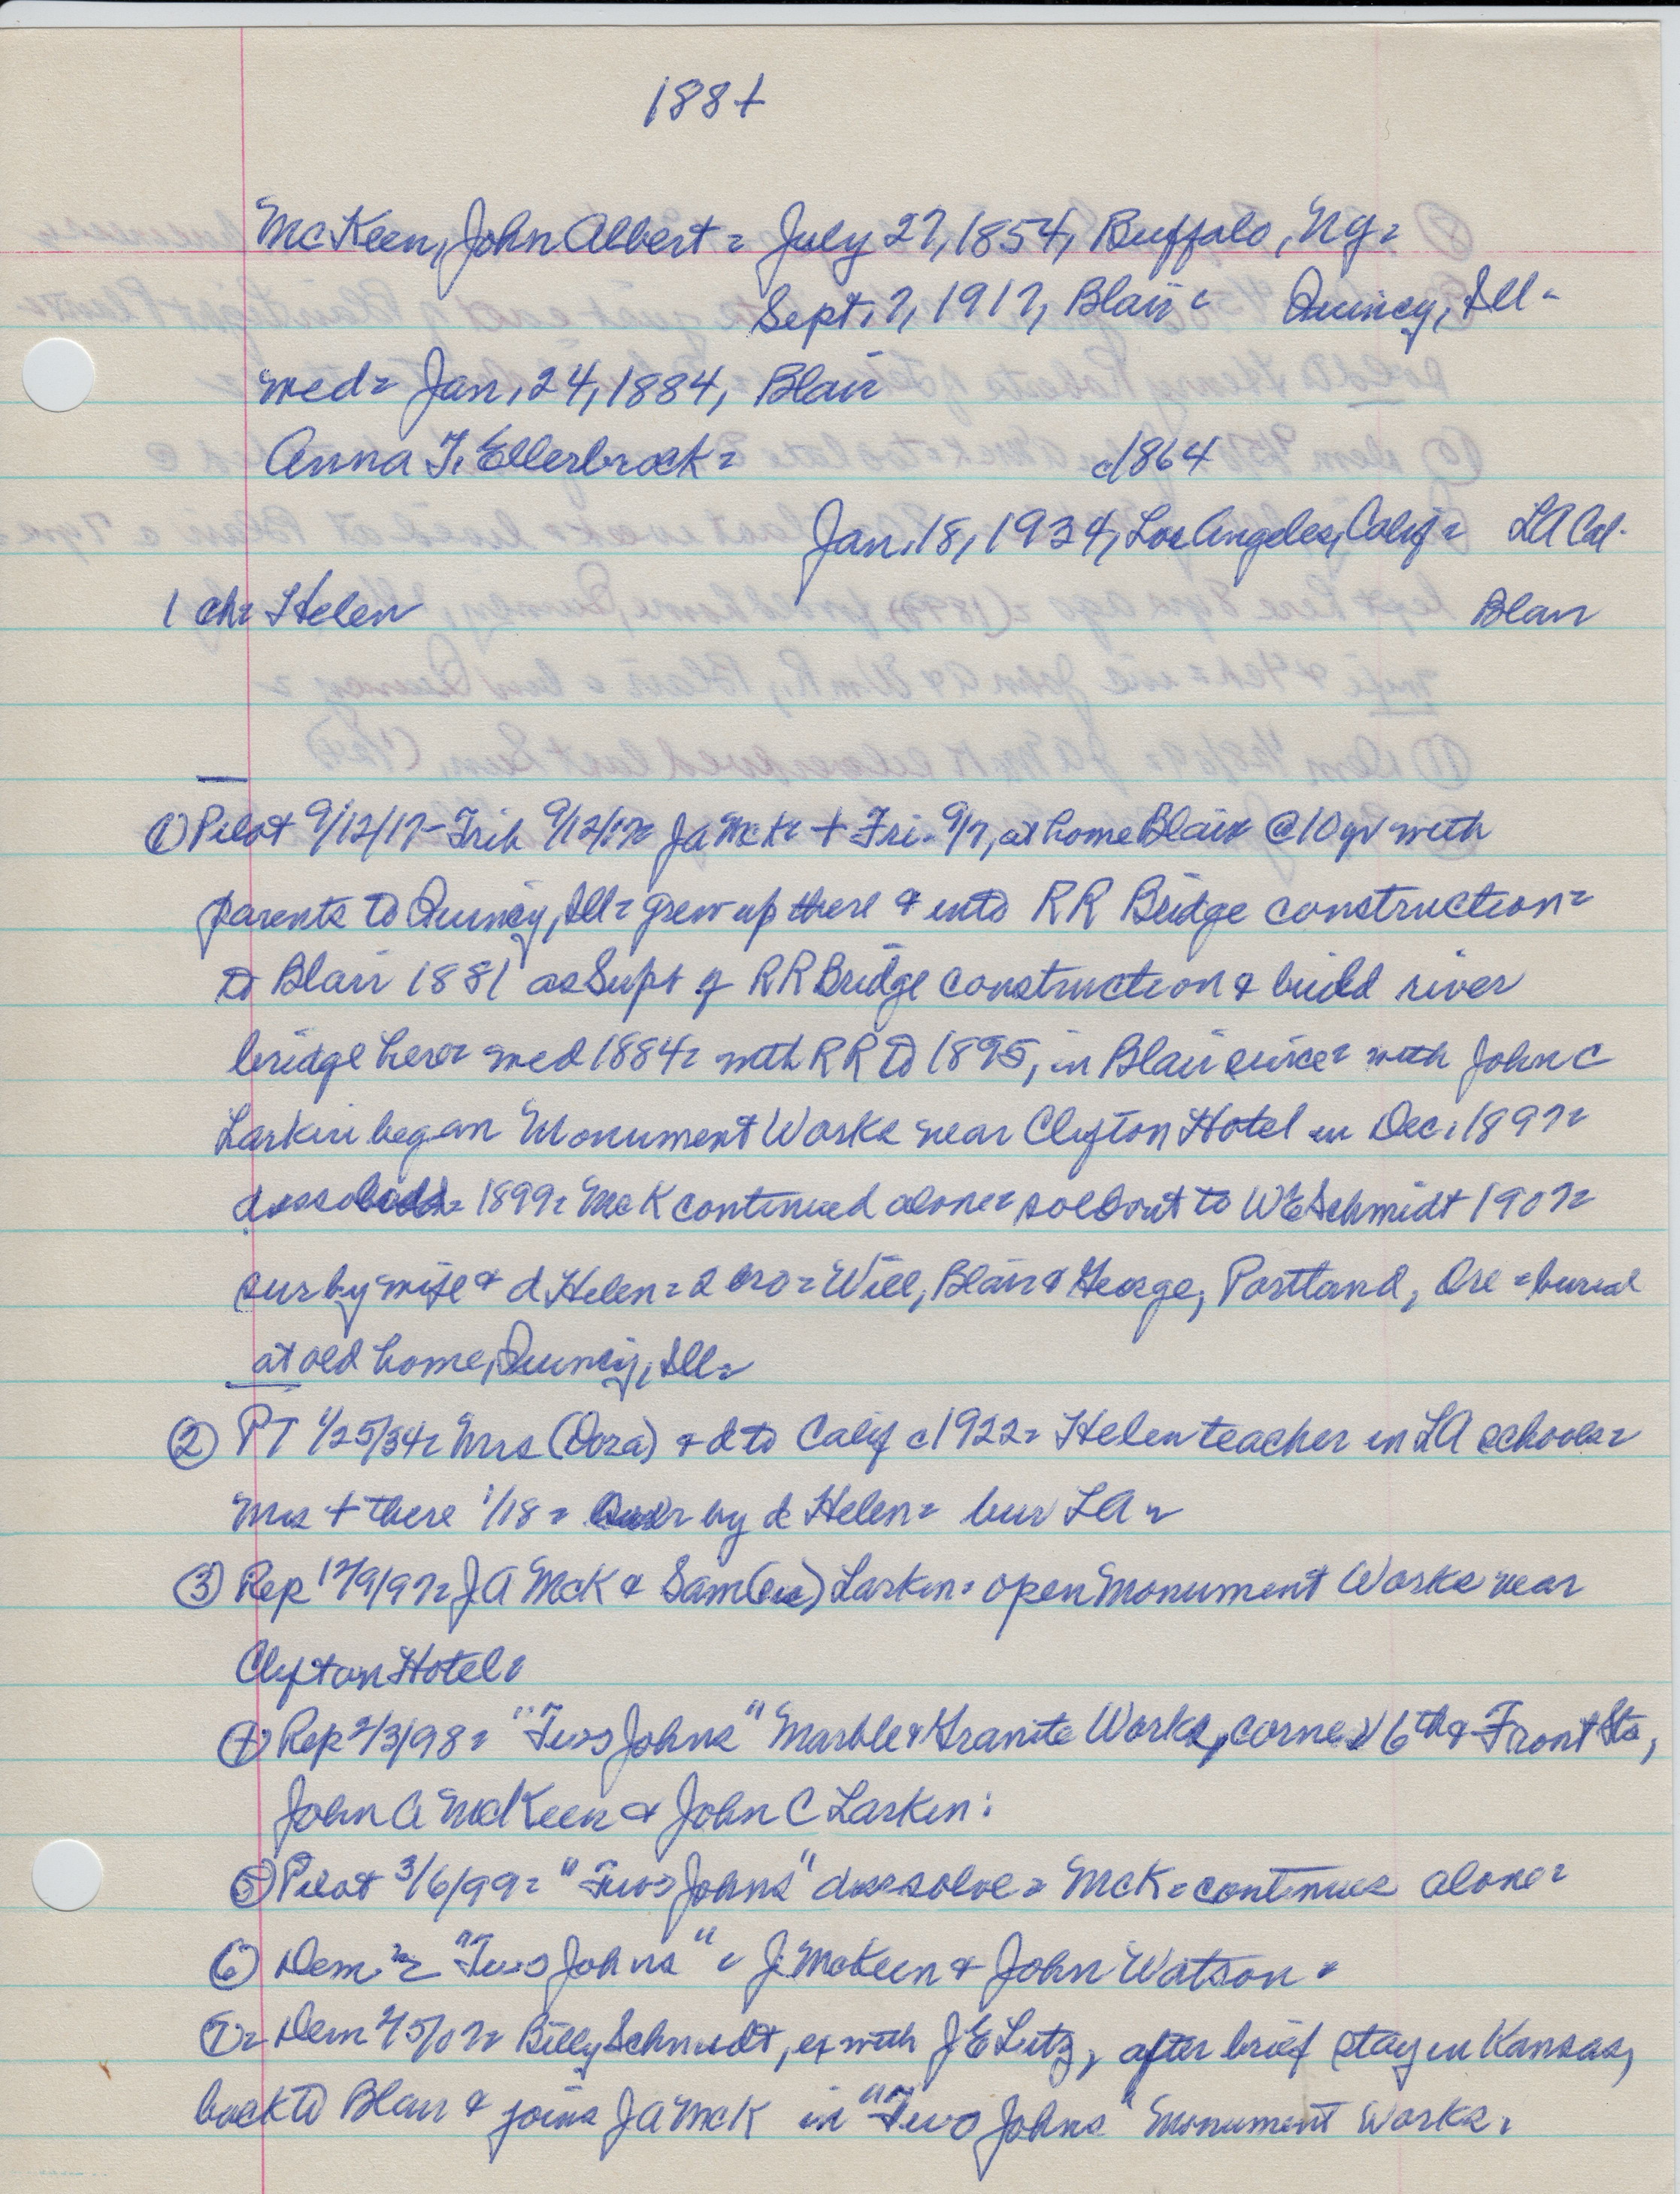 188+
McKeen, John Albert = July 27, 1854, Buffalo, Ny =
Sept. 7, 1917, Blair = Quincy, Ill -
med = Jan. 24, 1884, Blair
Anna T. Ellerbrock = c1864
Jan. 18, 1934, Los Angeles, Calif = LA Cal.
1 ch = Helen Blair
① Pilot 9/12/17 - Trib 9/12/17 = JA McK = + Fri. 9/7, at home Blair @ 10 yr with
parents to Quincy, Ill = grew up there & into RR Bridge construction =
to Blair 1881 as Supt of RR Bridge construction & build river
bridge here = med 1884 = with RR to 1895, in Blair since = with John C
Larkin began Monument Works near Clifton Hotel in Dec. 1897 =
dissolved = 1899 = McK continued alone = sold out to WE Schmidt 1907 =
sur by wife & d Helen = 2 bro = Will, Blair & George, Portland, Ore = burial
at old home, Quincy, Ill =
② PT 1/25/34 = Mrs (Dora) & d to Calif c1922 = Helen teacher in LA schools =
Mrs + there 1/18 = sur by d Helen = bur LA =
③ Rep 12/9/97 = JA McK & Sam (sic) Larkin = open Monument Works near
Clifton Hotel =
④ Rep 2/3/98 = "Two Johns" Marble & Granite Works, corner 6th & Front Sts,
John A McKeen & John C Larkin =
⑤ Pilot 3/6/99 = "Two Johns" dissolve = McK = continues alone =
⑥ Dem = "Two Johns" = J. McKeen & John Watson =
⑦ = Dem 4/5/07 = Billy Schmidt, ex with J E Lutz, after brief stay in Kansas,
back to Blair & joins JA McK in "Two Johns" Monument Works.